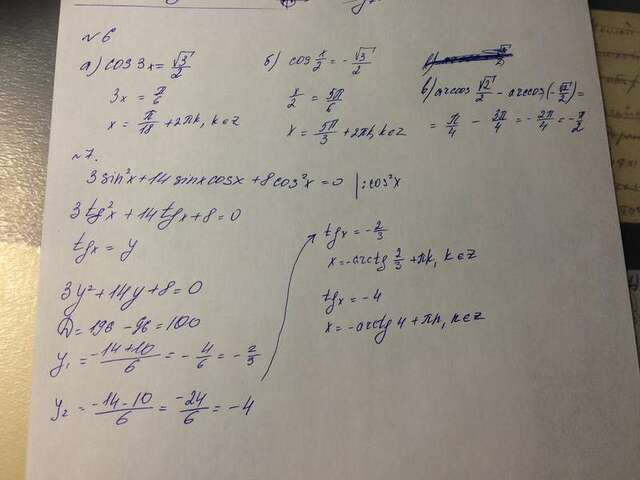 №6
а) cos 3x = √3/2
3x = π/6
x = π/18 + 2πk, k∈Z
б) cos x/2 = -√3/2
x/2 = 5π/6
x = 5π/3 + 2πk k∈Z
в) arccos √2/2 - arccos(-√2/2) =
= π/4 - 3π/4 = -2π/4 = -π/2
№7.
3sin²x + 14 sinxcosx + 8cos²x = 0 | :cos²x
3tg²x + 14 tgx + 8 = 0
tgx = y
3y² + 14y + 8 = 0
D = 196 - 96 = 100
y₁ = -14+10/6 = -4/6 = -2/3
y₂ = -14-10/6 = -24/6 = -4
tgx = -2/3
x = -arctg 2/3 + πk, k∈Z
tgx = -4
x = -arctg 4 + πk, k∈Z